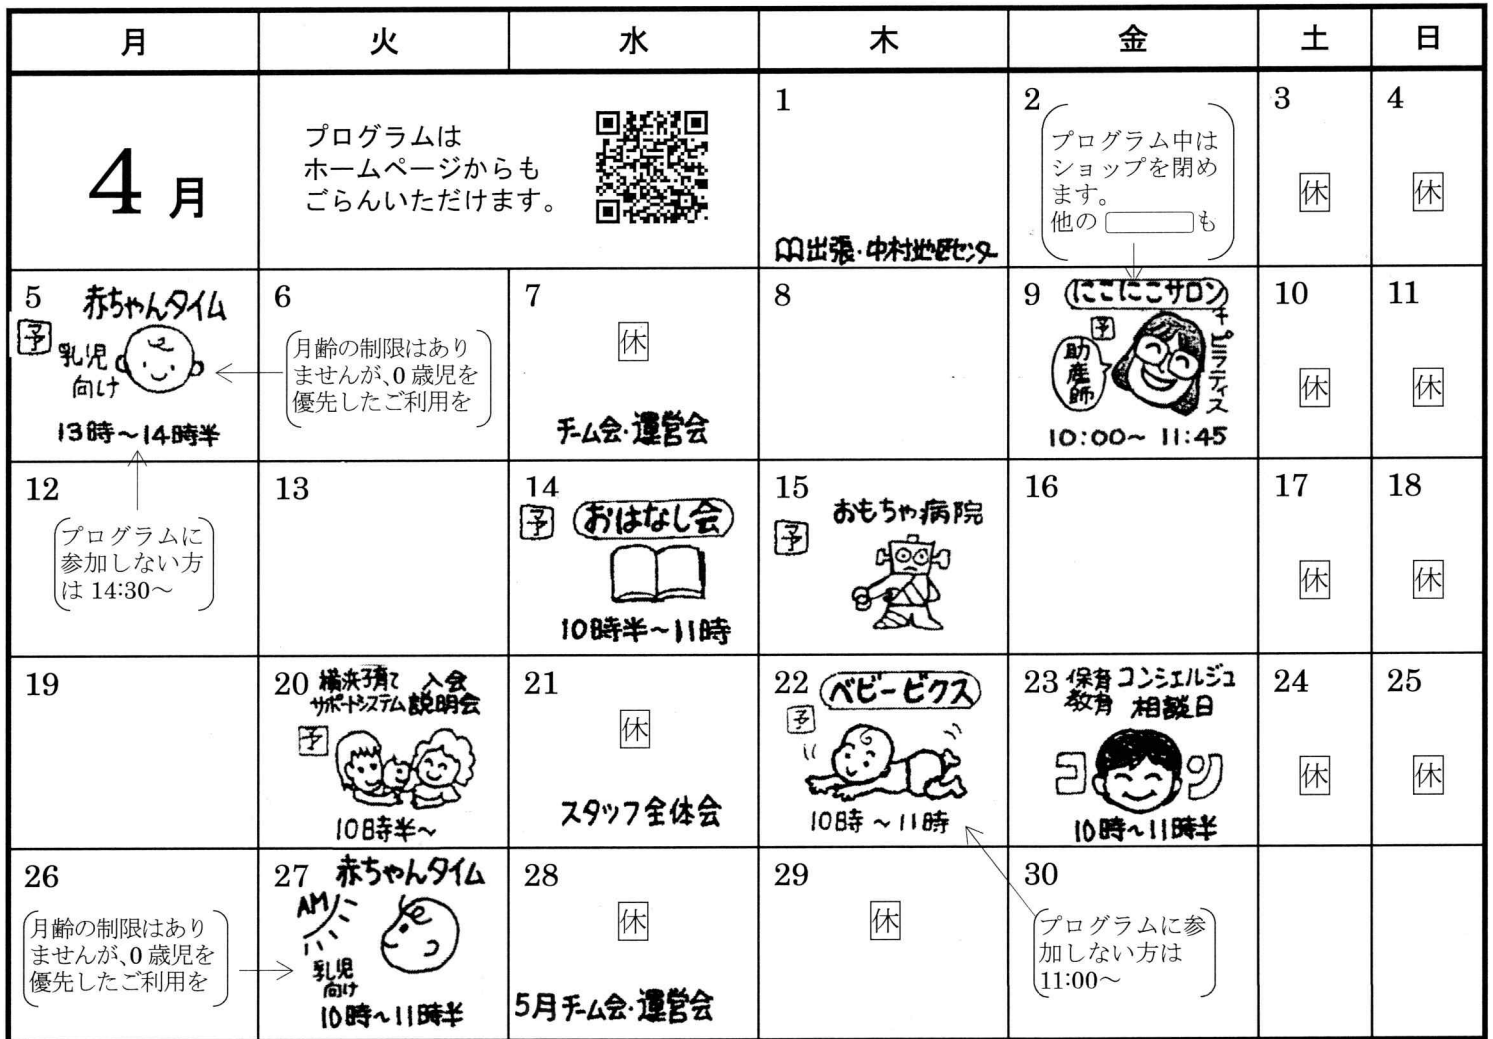 月 火 水 木 金 土 日
4 月
プログラムは
ホームページからも
ごらんいただけます。
1
出張・中村地区センター
2
プログラム中は
ショップを閉め
ます。
他の も
3
休
4
休
5
赤ちゃんタイム
予
乳児
向け
13時～14時半
6
月齢の制限はあり
ませんが、0 歳児を
優先したご利用を
7
休
チーム会・運営会
8
9
にこにこサロン
予
助産師
+ピラティス
10:00～ 11:45
10
休
11
休
12
プログラムに
参加しない方
は 14:30～
13
14
予
おはなし会
10時半～11時
15
おもちゃ病院
予
16
17
休
18
休
19
20
横浜子育て
サポートシステム
入会
説明会
予
10時半～
21
休
スタッフ全体会
22
ベビービクス
予
10時～11時
23
保育
教育
コンシェルジュ
相談日
コ ン
10時～11時半
24
休
25
休
26
月齢の制限はあり
ませんが、0 歳児を
優先したご利用を
27
赤ちゃんタイム
AM
乳児
向け
10時～11時半
28
休
5月チーム会・運営会
29
休
30
プログラムに参
加しない方は
11:00～